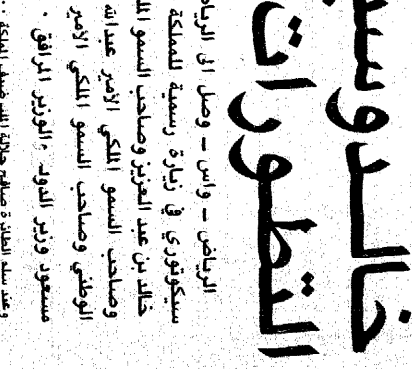 خالد وسيـ
التطورات
الرياض - واس - وصل الى الريا
سيكوتوري في زيارة رسمية للمملكة
خالد بن عبد العزيز وصاحب السمو الملـ
وصاحب السمو الملكي الأمير عبدالله
الوطني وصاحب السمو الملكي الأمير
مسعود وزير الدولة الوزير المرافق .
وعند سلم الطائرة صافح جلالة الملك ضيف المملكة ..